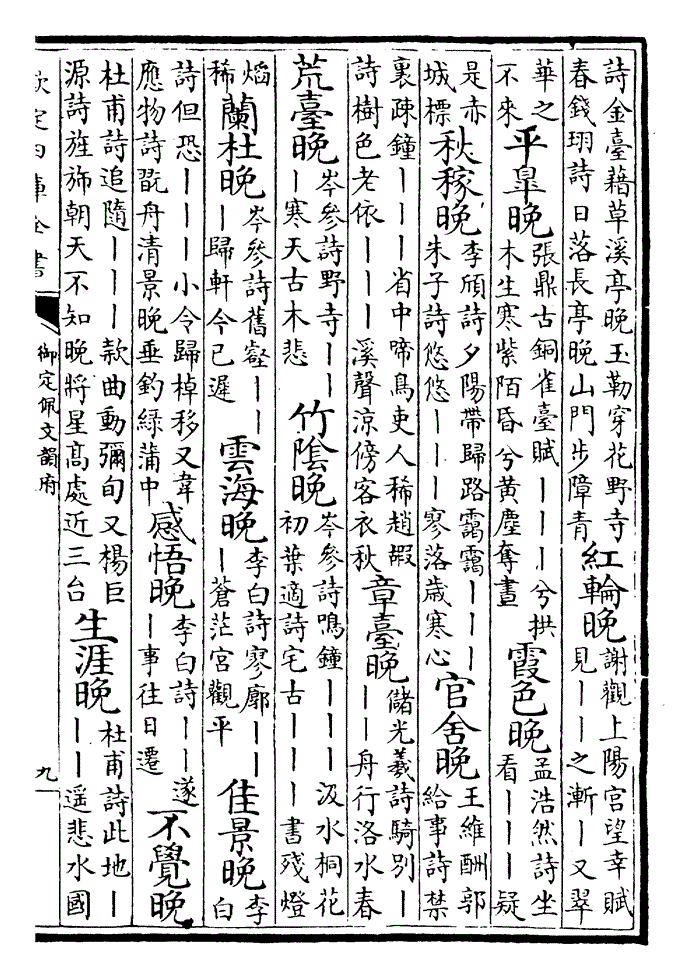 詩金臺藉草溪亭晚玉勒穿花野寺
春錢珝詩日落長亭晚山門步障青
紅輪晚
謝觀上陽宮望幸賦
見丨丨之漸丨又翠
華之
不來
平皐晚
張鼎古銅雀臺賦丨丨丨兮拱
木生寒紫陌昏兮黃塵奪晝
霞色晚
孟浩然詩坐
看丨丨丨疑
是赤
城標
秋稼晚
李頎詩夕陽帶歸路靄靄丨丨丨
朱子詩悠悠丨丨丨寥落歲寒心
官舍晚
王維酬郭
給事詩禁
裏疎鐘丨丨丨省中啼鳥吏人稀趙嘏
詩樹色老依丨丨丨溪聲涼傍客衣秋
章臺晚
儲光羲詩騎別丨
丨丨舟行洛水春
荒臺晚
岑參詩野寺丨丨
丨寒天古木悲
竹陰晚
岑參詩鳴鐘丨丨丨汲水桐花
初葉適詩宅古丨丨丨書殘燈
焰
稀
蘭杜晚
岑參詩舊壑丨丨
丨歸軒今已遲
雲海晚
李白詩寥廓丨丨
丨蒼茫宮觀平
佳景晚
李
白
詩但恐丨丨丨小令歸棹移又韋
應物詩翫舟清景晚垂釣綠蒲中
感悟晚
李白詩丨丨遂
丨事往日遷
不覺晚
杜甫詩追隨丨丨丨款曲動彌旬又楊巨
源詩旌斾朝天不知晚將星高處近三台
生涯晚
杜甫詩此地丨
丨丨遥悲水國
欽定四庫全書
御定佩文韻府
九